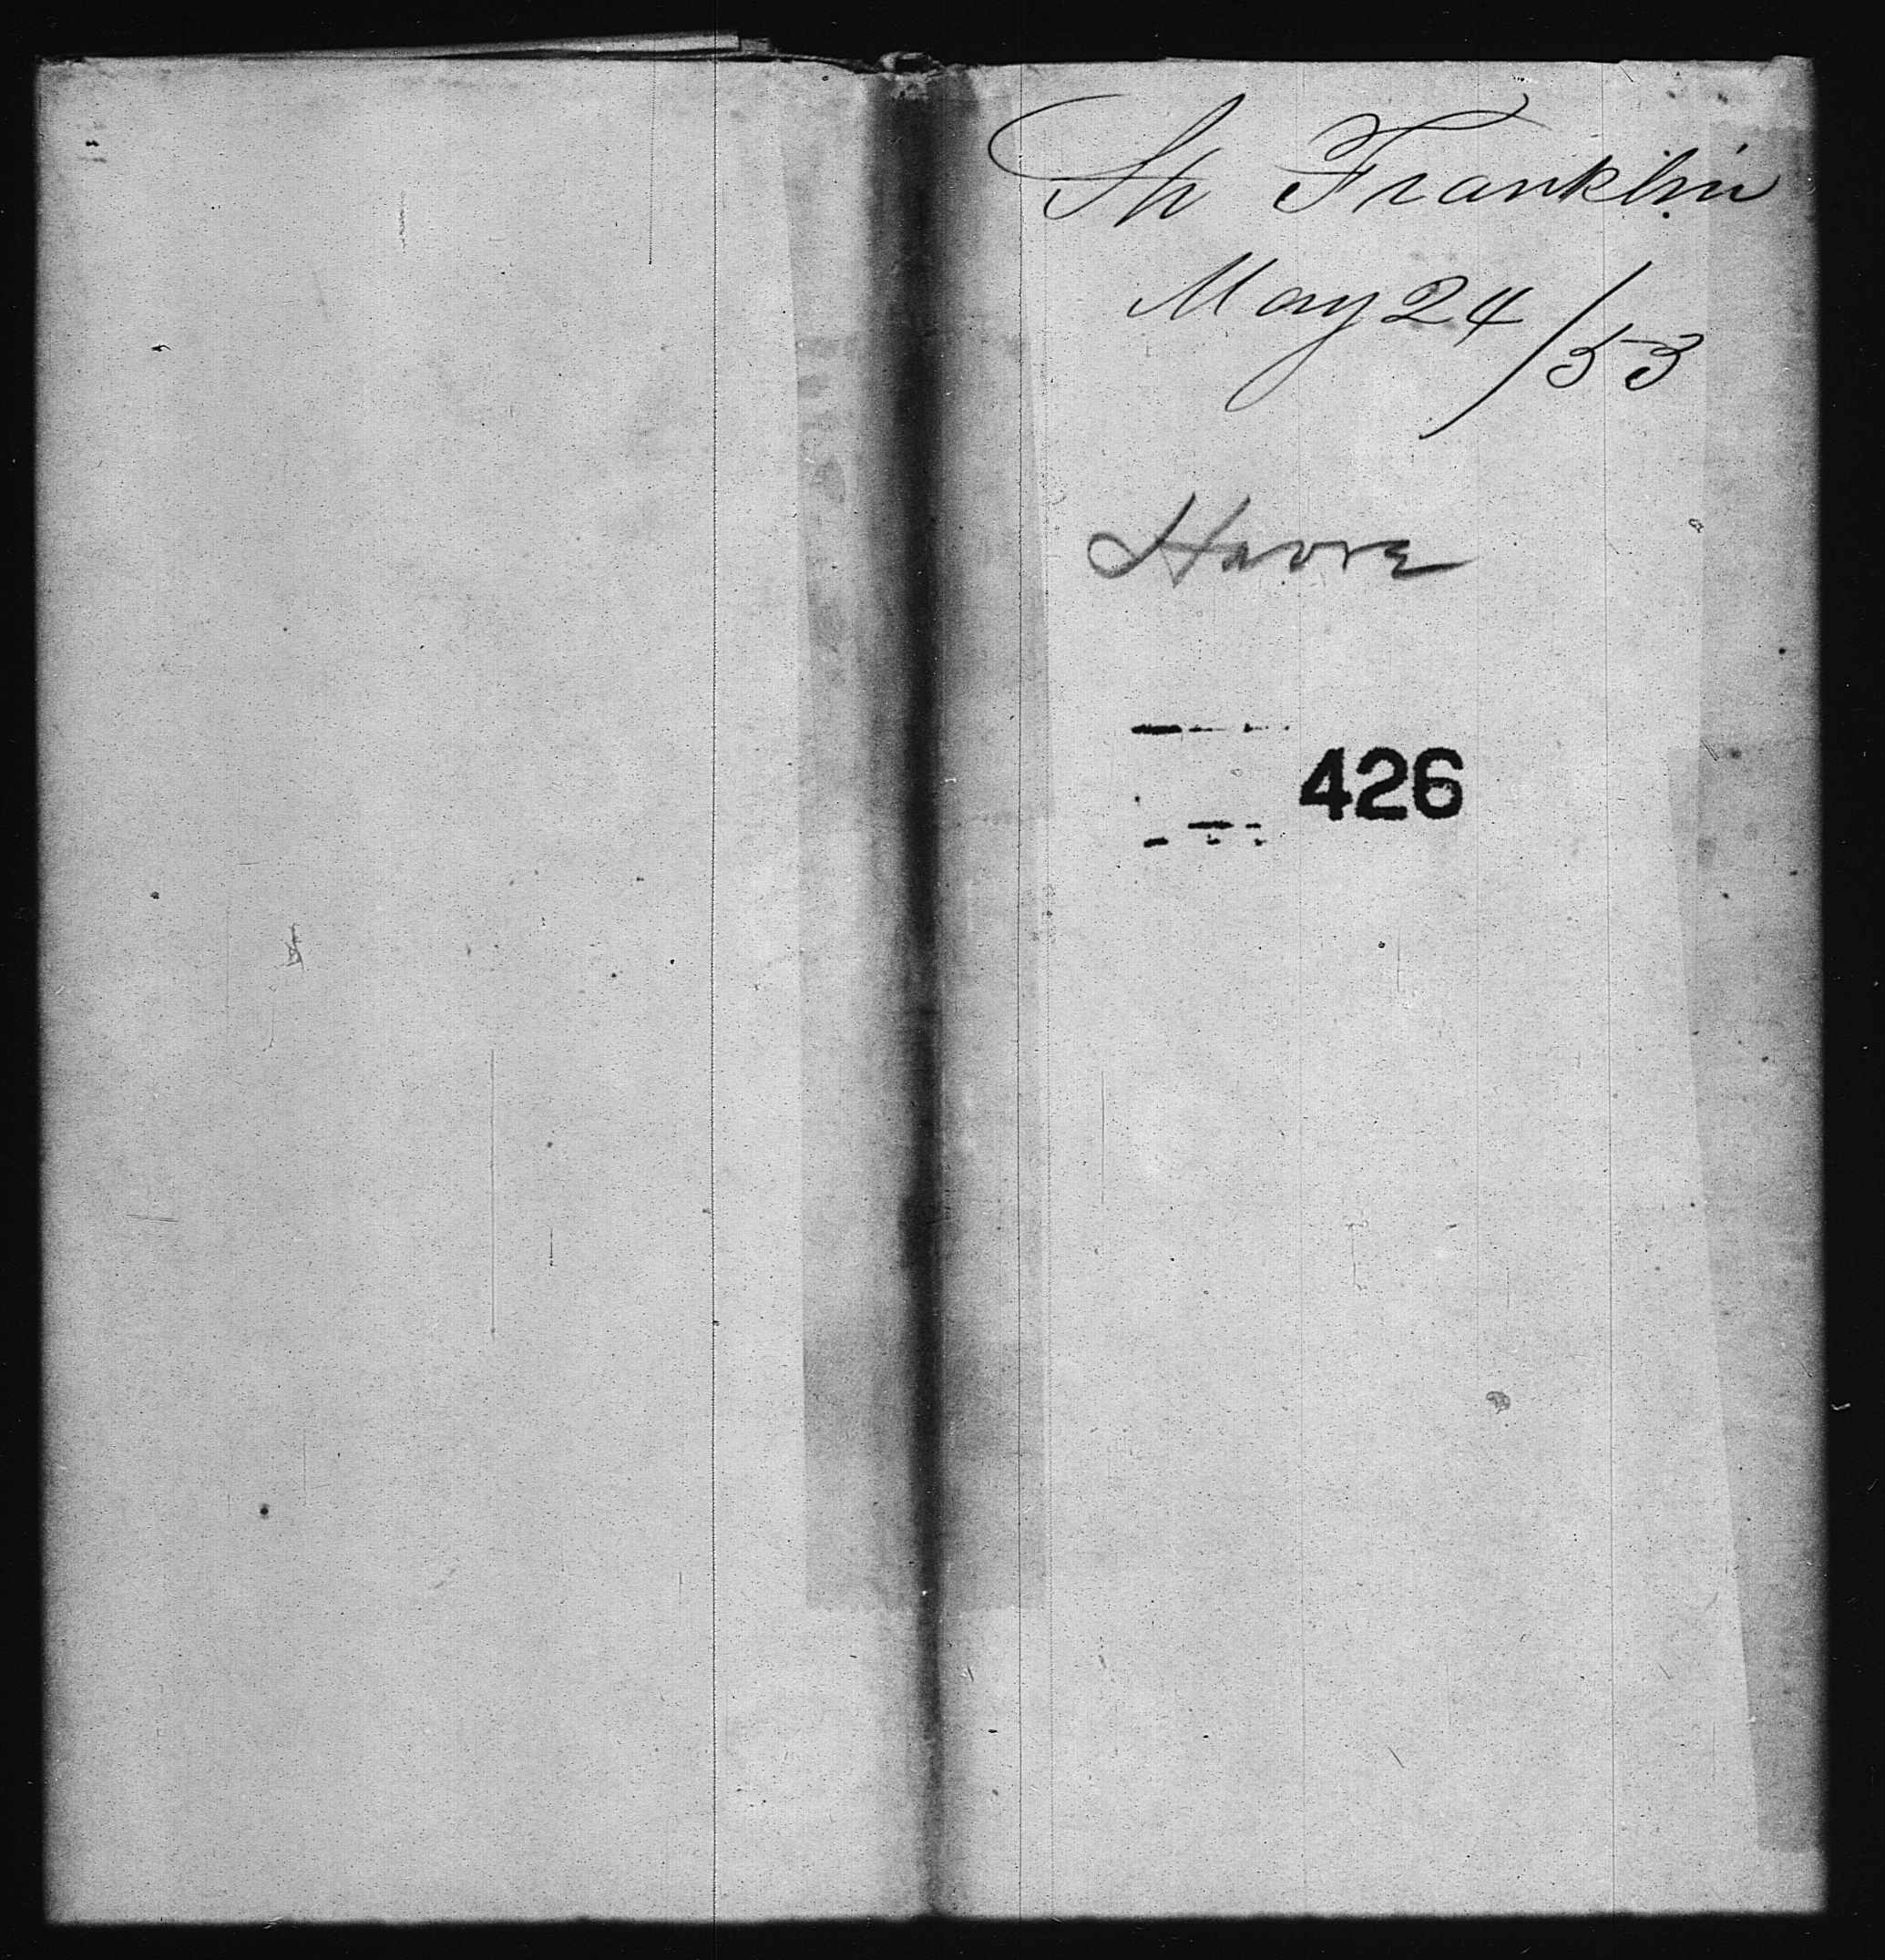 Sh Franklin
May 24/53
Havre
426